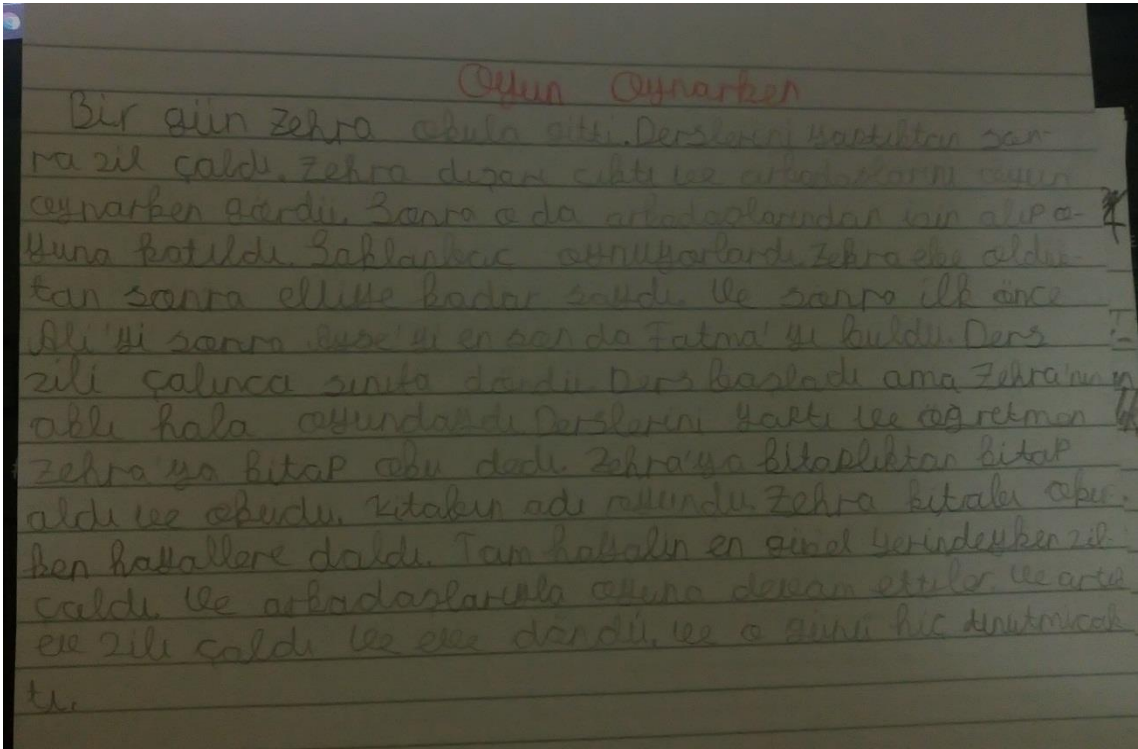 Oyun Oynarken
Bir gün Zehra okula gitti. Derslerini yaptıktan son-
ra zil çaldı. Zehra dışarı çıktı ve arkadaşlarını oyun
oynarken gördü. Sonra o da arkadaşlarından izin alıp o-
yuna katıldı. Saklanbaç oynuyorlardı. Zehra ebe olduk-
tan sonra elliye kadar saydı. Ve sonra ilk önce
Ali'yi sonra Ayşe'yi en son da Fatma'yı buldu. Ders
zili çalınca sınıfa döndü. Ders başladı ama Zehra'nın
aklı hala oyundaydı. Derslerini yaptı ve öğretmen
Zehra'ya kitap oku dedi. Zehra'ya kitaplıktan kitap
aldı ve okudu. Kitabın adı oyundu. Zehra kitabı okur-
ken hayallere daldı. Tam hayalin en güzel yerindeyken zil
çaldı. Ve arkadaşlarıyla oyuna devam ettiler. Ve artık
eve zili çaldı ve eve döndü. ve o günü hiç unutmıcak
tı.